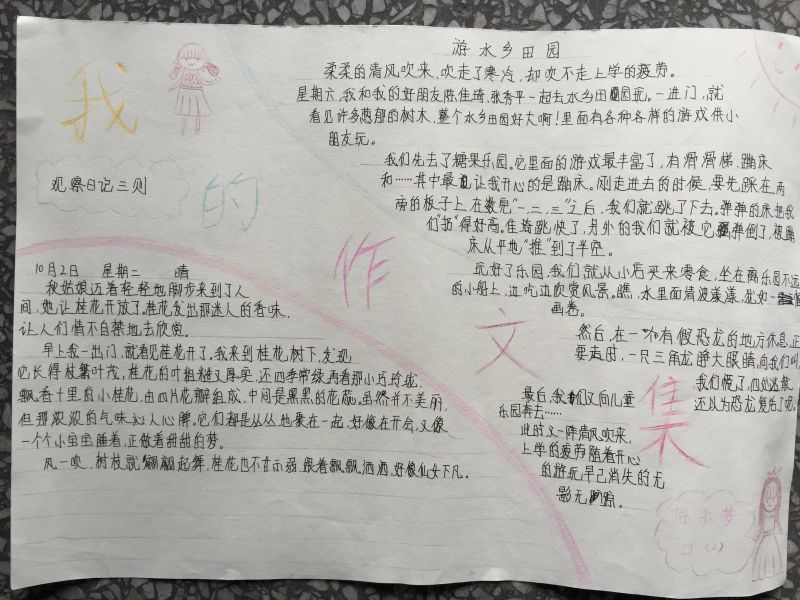 我
的
作
文
集
观察日记三则
10月2日 星期二 晴
秋姑娘迈着轻轻地脚步来到了人
间,她让桂花开放了。桂花发出那迷人的香味,
让人们情不自禁地去欣赏。
早上我一出门,就看见桂花开了。我来到桂花树下,发现
它长得枝繁叶茂,桂花的叶粗糙又厚实,还四季常绿再看那小巧玲珑,
飘香十里的小桂花,由四片花瓣组成,中间是黑黑的花蕊。虽然并不美丽,
但那浓浓的气味沁人心脾。它们都是丛丛地聚在一起,好像在开会,又像
一个个小宝宝睡着,正做着甜甜的梦。
风一吹,树枝就翩翩起舞,桂花也不甘示弱,跟着飘飘洒洒,好像仙女下凡。
游水乡田园
柔柔的清风吹来,吹走了寒冷,却吹不走上学的疲劳。
星期六,我和我的好朋友陈佳琦,张秀平一起去水乡田园玩。一进门,就
看见许多葱郁的树木,整个水乡田园好大啊!里面有各种各样的游戏供小
朋友玩。
我们先去了糖果乐园。它里面的游戏最丰富了,有滑滑梯、蹦床
和……其中最让我开心的是蹦床。刚走进去的时候,要先踩在两
旁的板子上,在数完“一,二,三”之后,我们就跳了下去。弹弹的床把我
们“扔”得好高。佳琦跳快了,另外的我们就被它弹倒了,被蹦
床从平地“推”到了半空。
玩好了乐园,我们就从小店买来零食,坐在离乐园不远
的小船上,边吃边欣赏风景。瞧,水里面清波漾漾,犹如一
画卷。
然后,在一个有假恐龙的地方休息,正
要走时,一只三角龙睁大眼睛,向我们叫,
我们慌了,四处逃散,
还以为恐龙复活了呢。
最后,我们又向儿童
乐园奔去……
此时又一阵清风吹来,
上学的疲劳随着开心
的游玩早已消失的无
影无踪。